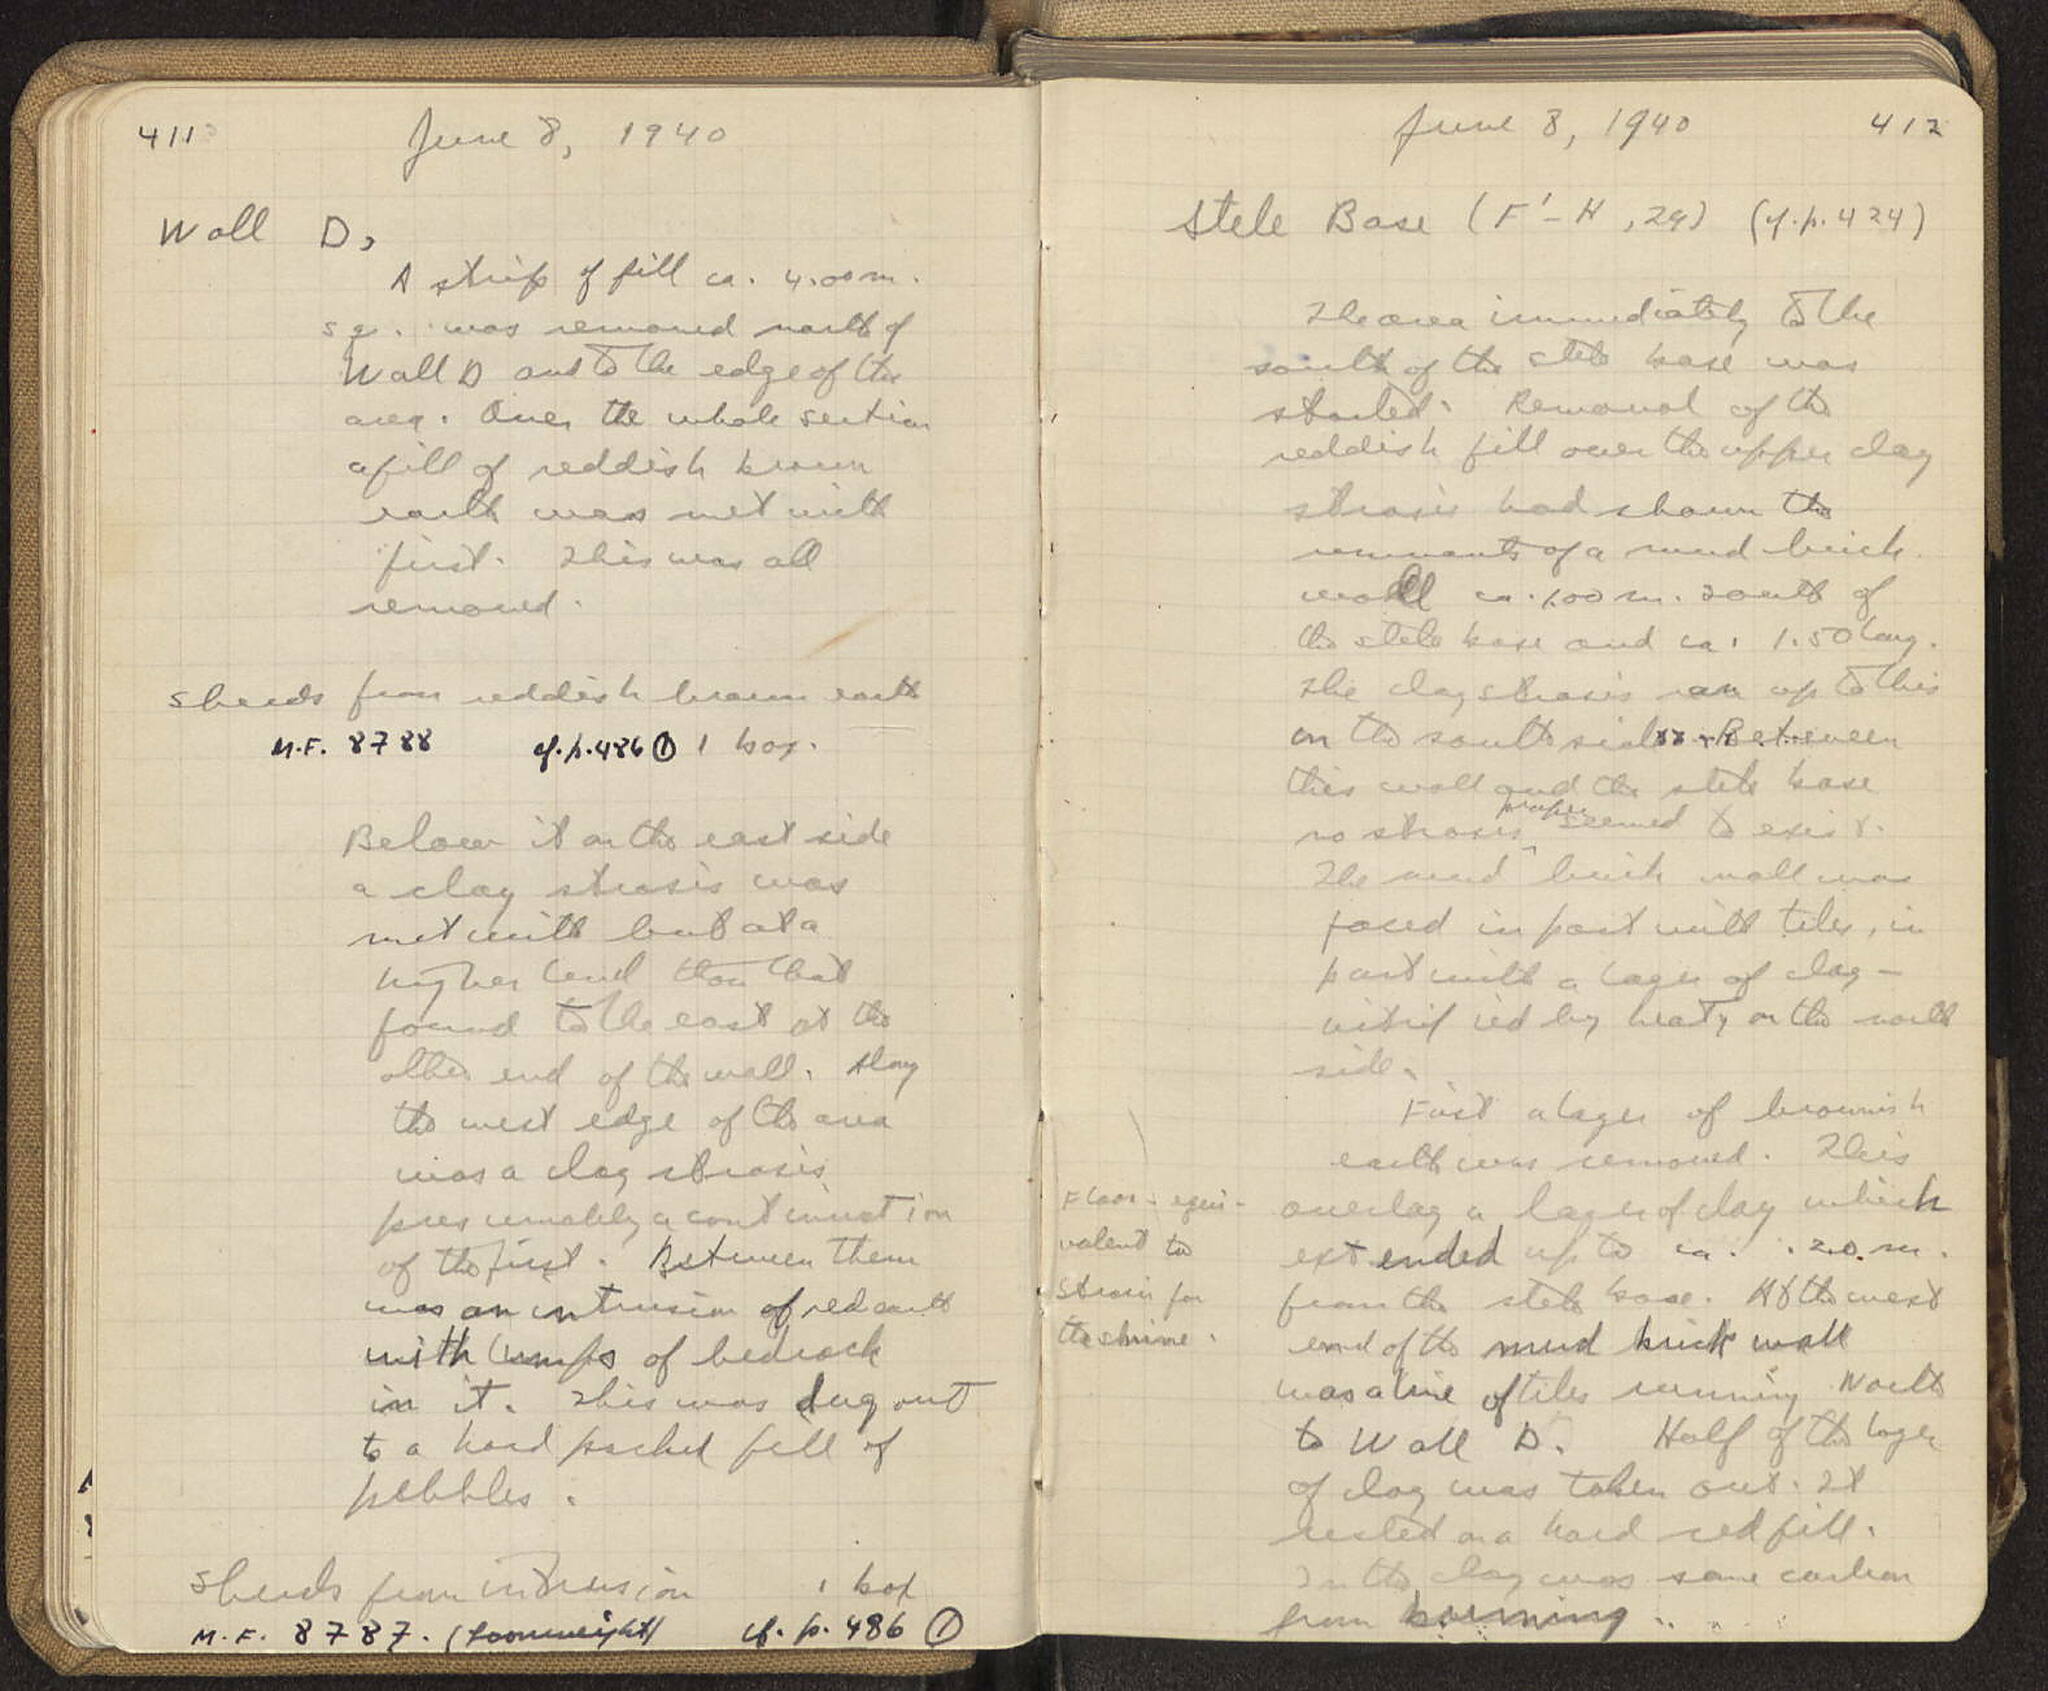 411
June 8, 1940
Wall D,
A strip of fill ca. 4.00 m.
sq. was removed north of
Wall D and to the edge of the
area. Over the whole section
a fill of reddish brown
earth was met with
first. This was all
removed.
Sherds from reddish brown earth
M.F. 8788 cf. p. 486 ① 1 box.
Below it on the east side
a clay strosis was
met with but at a
higher level than that
found to the east at the
other end of the wall. Along
the west edge of the area
was a clay strosis
presumably a continuation
of the first. Between them
was an intrusion of red earth
with lumps of bedrock
in it. This was dug out
to a hard packed fill of
pebbles.
Sherds from intrusion 1 box
M.F. 8787. (loomweight) cf. p. 486 ①
June 8, 1940
412
Stele Base (F'-H, 29) (cf. p. 424)
The area immediately to the
south of the stele base was
started. Removal of the
reddish fill over the upper clay
strosis had shown the
remnants of a mud brick
wall ca. 1.00 m. south of
the stele base and ca. 1.50 long.
The clay strosis ran up to this
on the south side. Between
this wall and the stele base
no strosis proper seemed to exist.
The mud brick wall was
faced in part with tiles, in
part with a layer of clay -
vitrified by heat, on the north
side.
First a layer of brownish
earth was removed. This
overlay a layer of clay which
extended up to ca. .20 m.
from the stele base. At the west
end of the mud brick wall
was a line of tiles running North
to Wall D. Half of the layer
of clay was taken out. It
rested on a hard red fill.
In the clay was some carbon
from burning.
Floor - equi-
valent to
strosis for
the shrine.